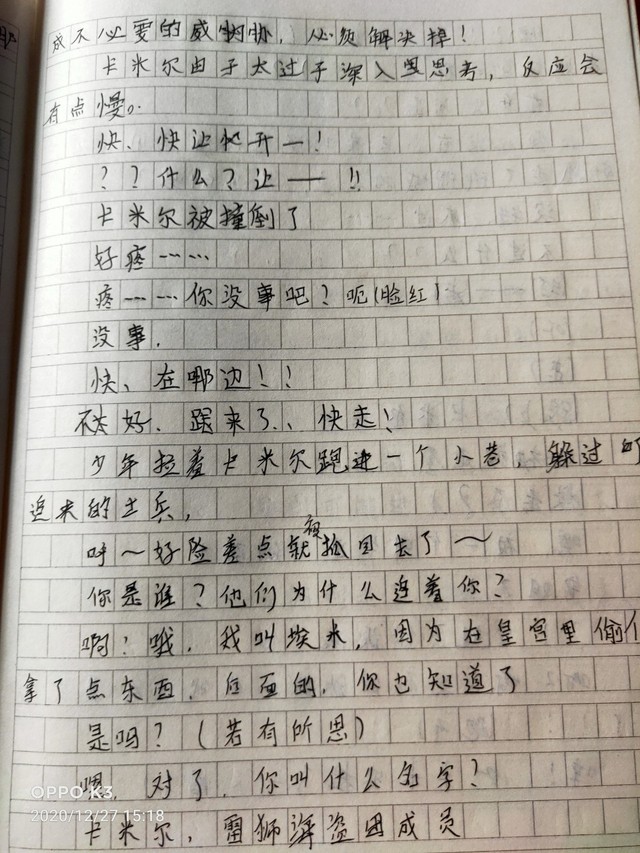 成不必要的威胁，必须解决掉！
卡米尔由于太过于深入思考，反应会
有点慢。
快、快让他开一！
？？什么？让——！！
卡米尔被撞倒了
好疼……
疼……你没事吧？呃(脸红)
没事.
快、在哪边！！
不太好、跟来了、快走！
少年拉着卡米尔跑进一个小巷，躲过了
追来的士兵，
呼～好险差点就被抓回去了～
你是谁？他们为什么追着你？
啊？哦，我叫埃米，因为在皇宫里偷亻
拿了点东西，后面的，你也知道了
是吗？(若有所思)
嗯 对了，你叫什么名字？
卡米尔，雷狮海盗团成员
OPPO K3,
2020/12/27 15:18